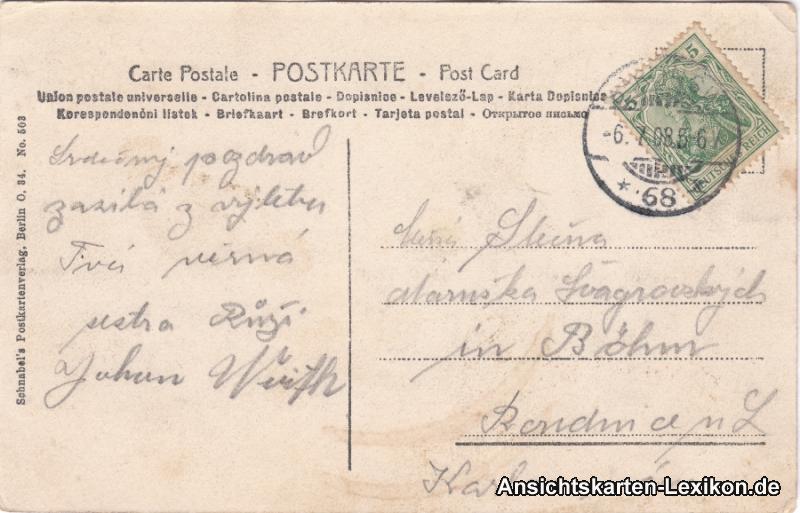 Carte Postale - POSTKARTE - Post Card
Union postale universelle - Cartolina postale - Dopisnice - Levelező-Lap - Karta Dopisnice
Korespondenční listek - Briefkaart - Brefkort - Tarjeta postal - Открытое письмо
Schnabel's Postkartenverlag, Berlin O. 34. No. 503
5
DEUTSCHES REICH
-6. 7. 08. 5-6
* 68
Srdečný pozdrav
zasílá z výletu
Tvá věrná
sestra Růži
Johan
Slečna
in Böhm
Roudnic a L
Ansichtskarten-Lexikon.de